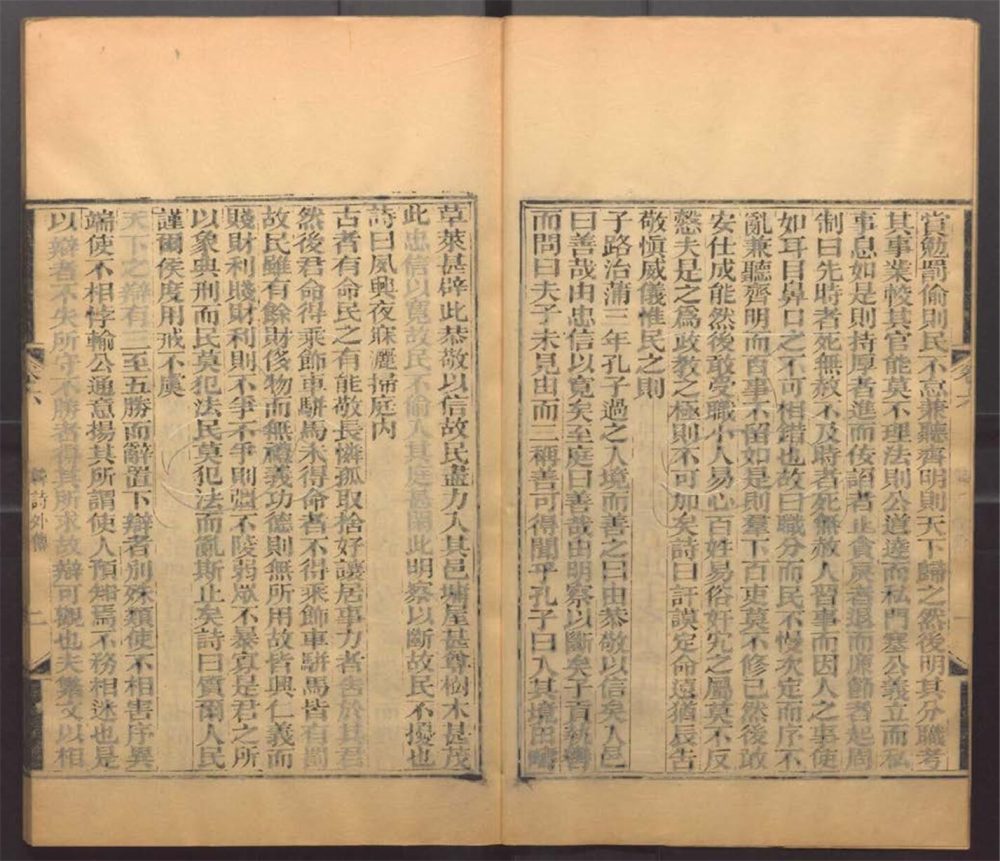 賞勉罰偷則民不怠兼聽齊明則天下歸之然後明其分職考
其事業較其官能莫不理法則公道達而私門塞公義立而私
事息如是則持厚者進而佞諂者止貪戾者退而廉節者起周
制曰先時者死無赦不及時者死無赦人習事而因人之事使
如耳目鼻口之不可相錯也故曰職分而民不慢次定而序不
亂兼聽齊明而百事不留如是則羣下百吏莫不修己然後敢
安仕成能然後敢受職小人易心百姓易俗奸宄之屬莫不反
慤夫是之爲政教之極則不可加矣詩曰訏謨定命遠猶辰告
敬愼威儀惟民之則
子路治蒲三年孔子過之入境而善之曰由恭敬以信矣入邑
曰善哉由忠信以寬矣至庭曰善哉由明察以斷矣子貢執轡
而問曰夫子未見由而三稱善可得聞乎孔子曰入其境田疇
草萊甚辟此恭敬以信故民盡力入其邑墉屋甚尊樹木甚茂
此忠信以寬故民不偷入其庭甚閑此明察以斷故民不擾也
詩曰夙興夜寐灑掃庭內
古者有命民之有能敬長憐孤取捨好讓居事力者告於其君
然後君命得乘飾車駢馬未得命者不得乘飾車駢馬皆有罰
故民雖有餘財侈物而無禮義功德則無所用故皆興仁義而
賤財利賤財利則不爭不爭則彊不陵弱眾不暴寡是君之所
以象典刑而民莫犯法民莫犯法而亂斯止矣詩曰質爾人民
謹爾侯度用戒不虞
天下之辯有三至五勝而辭置下辯者別殊類使不相害序異
端使不相悖輸公通意揚其所謂使人預知焉不務相迷也是
以辯者不失所守不勝者得其所求故辯可觀也夫繁文以相
卷六
韓詩外傳
二